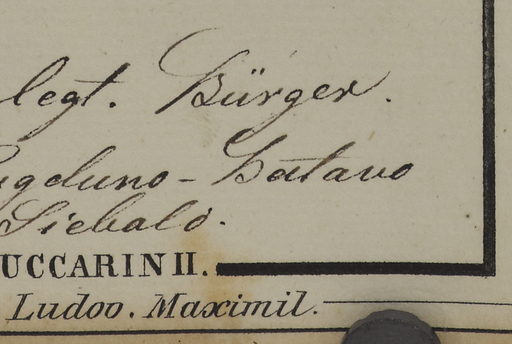 legt. Bürger.
ugduno-Batavo
Siebald.
UCCARINII.
Ludov. Maximil.